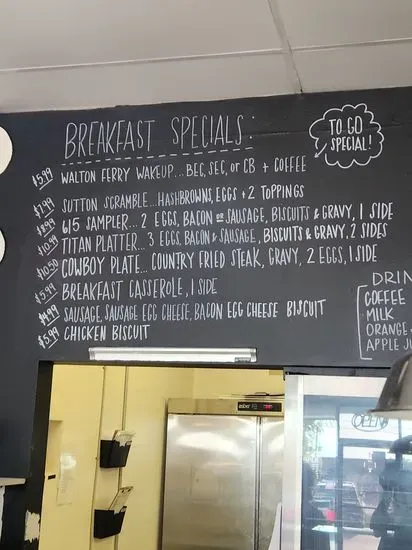 BREAKFAST SPECIALS:
TO GO
SPECIAL!
$5.99 WALTON FERRY WAKEUP... BEC, SEC, OR CB + COFFEE
$7.99 SUTTON SCRAMBLE... HASHBROWNS, EGGS + 2 TOPPINGS
$8.99 615 SAMPLER... 2 EGGS, BACON OR SAUSAGE, BISCUITS & GRAVY, 1 SIDE
$10.99 TITAN PLATTER... 3 EGGS, BACON & SAUSAGE, BISCUITS & GRAVY, 2 SIDES
$10.50 COWBOY PLATE... COUNTRY FRIED STEAK, GRAVY, 2 EGGS, 1 SIDE
$5.99 BREAKFAST CASSEROLE, 1 SIDE
$4.99 SAUSAGE, SAUSAGE EGG CHEESE, BACON EGG CHEESE BISCUIT
$5.99 CHICKEN BISCUIT
DRIN
COFFEE
MILK
ORANGE
APPLE JU
OPEN